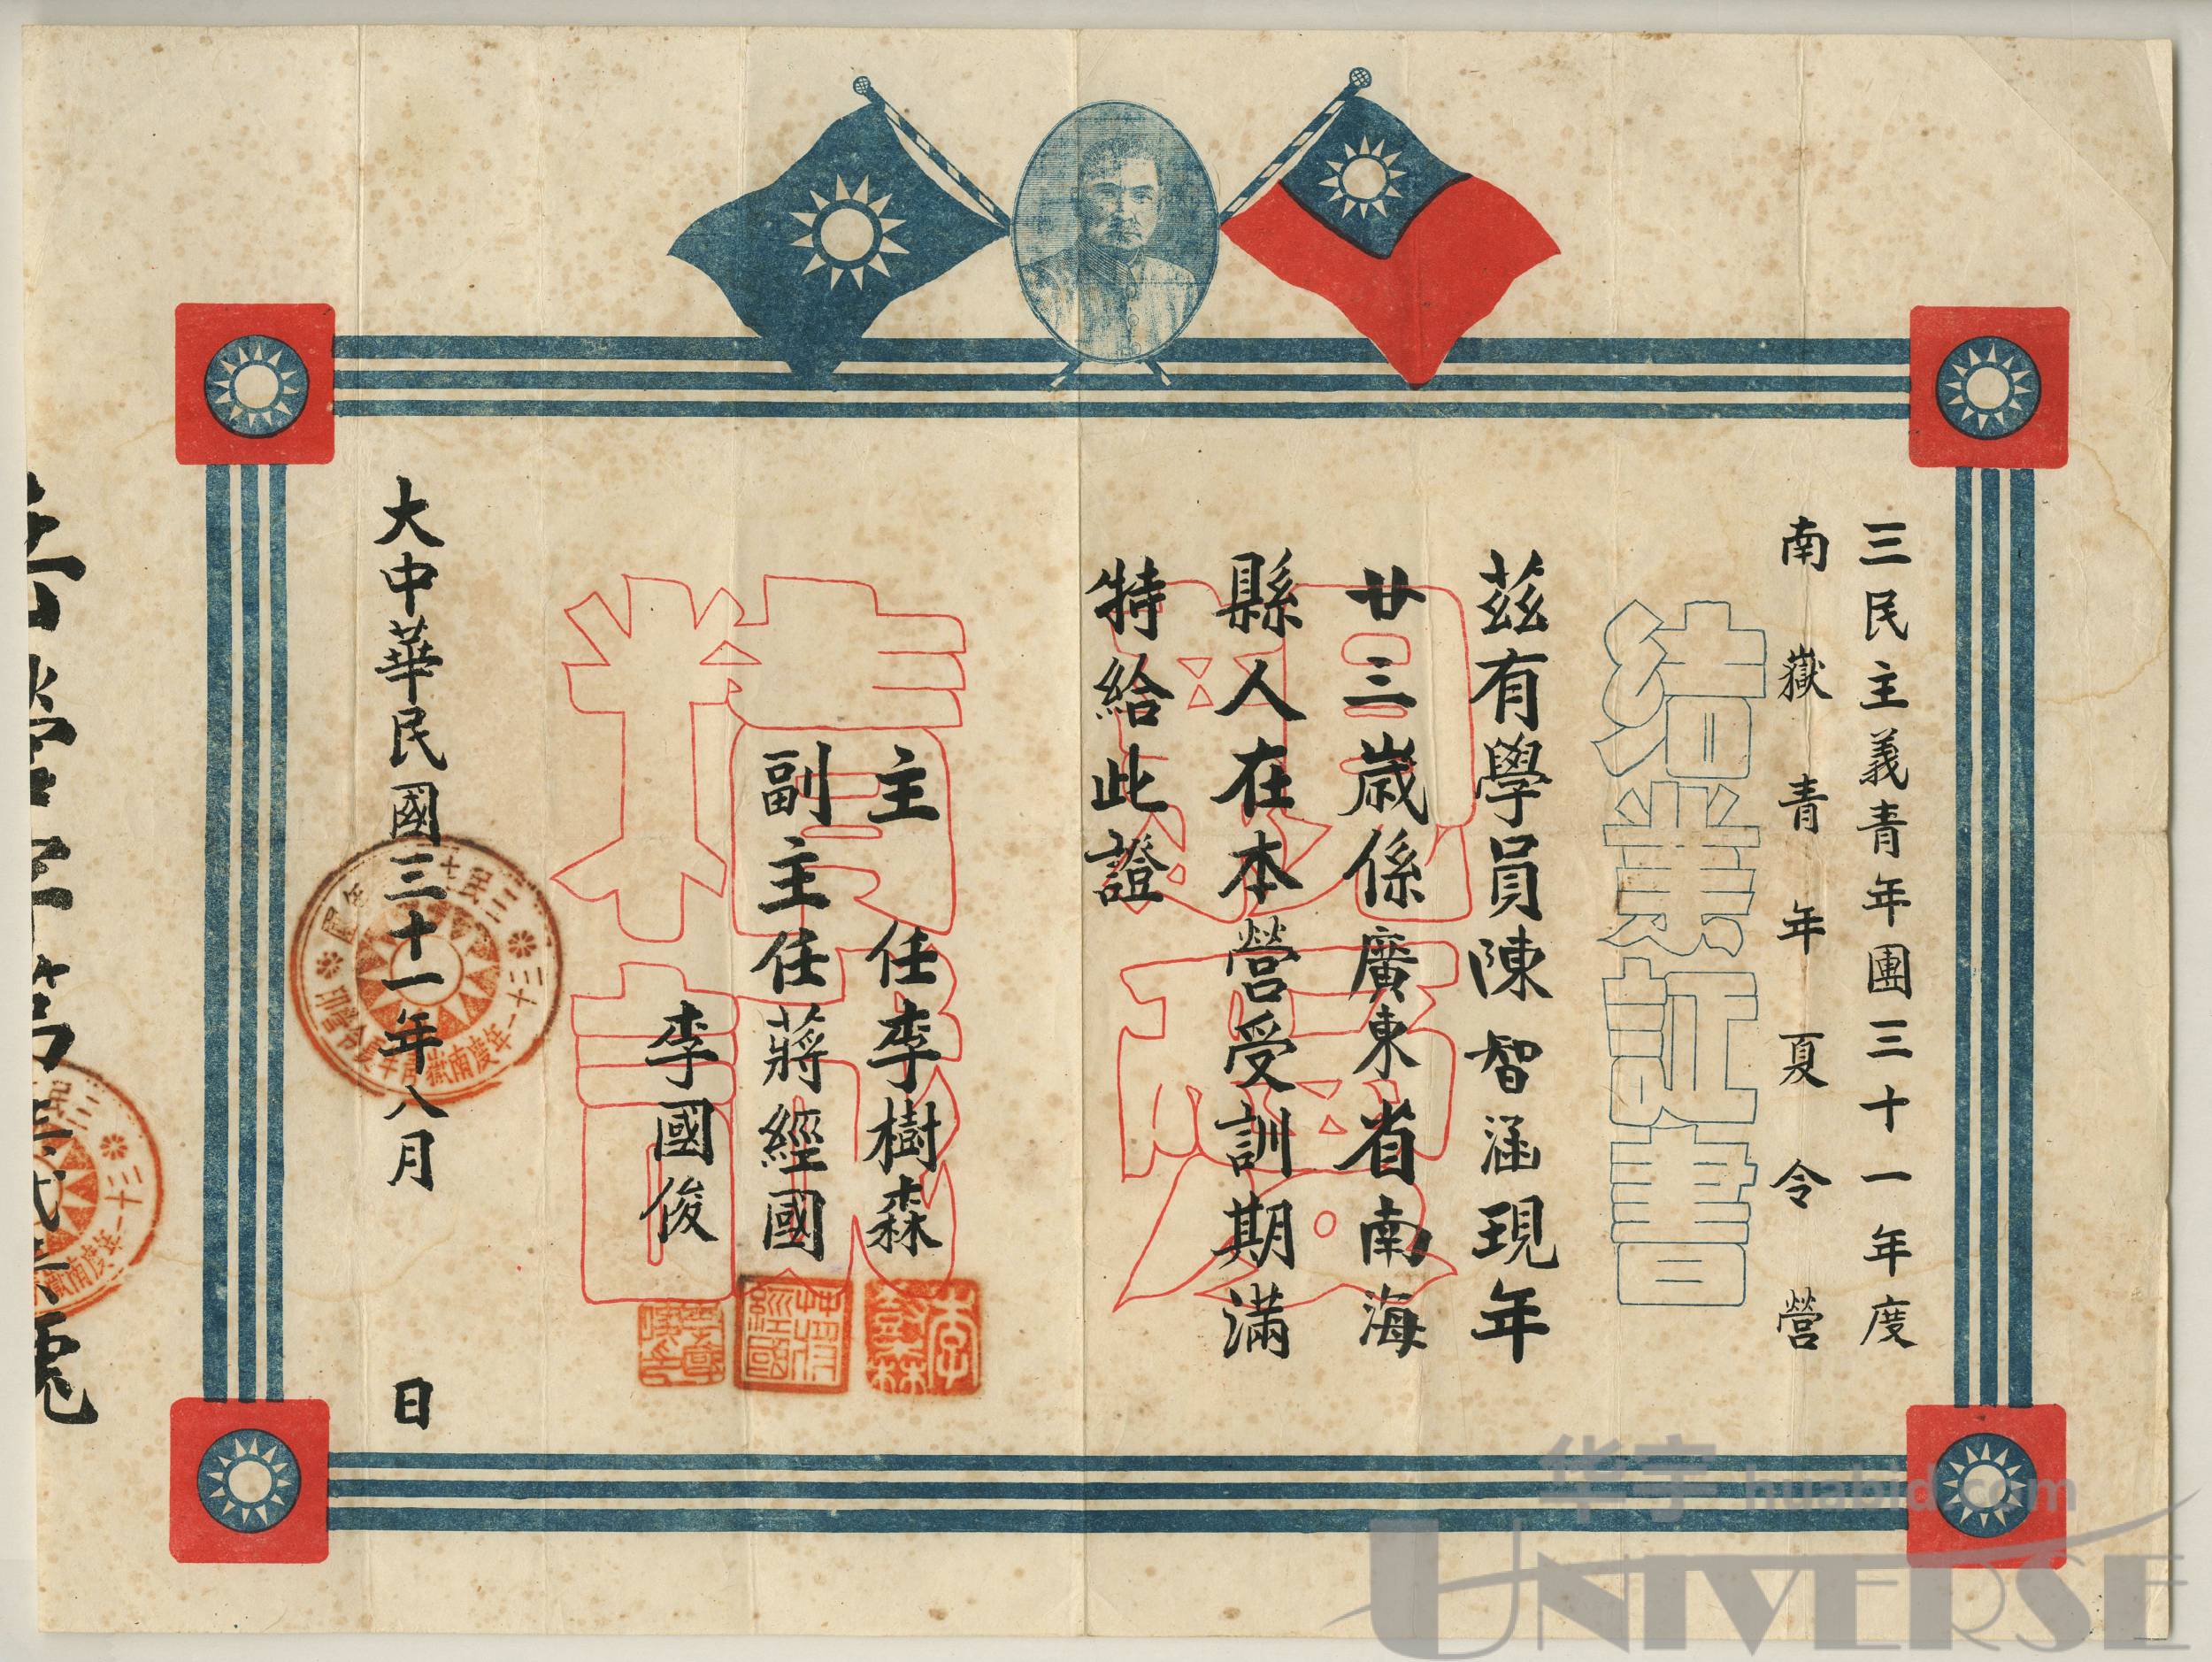 三民主義青年團三十一年度
南嶽青年夏令營
结業証書
茲有學員陳智涵現年
廿三歲係廣東省南海
縣人在本營受訓期滿
特給此證
親愛
精誠
主任李樹森
副主任蔣經國
李國俊
大中華民國三十一年八月 日
李樹森
蔣經國
华宇 huabid.com
UNIVERSE